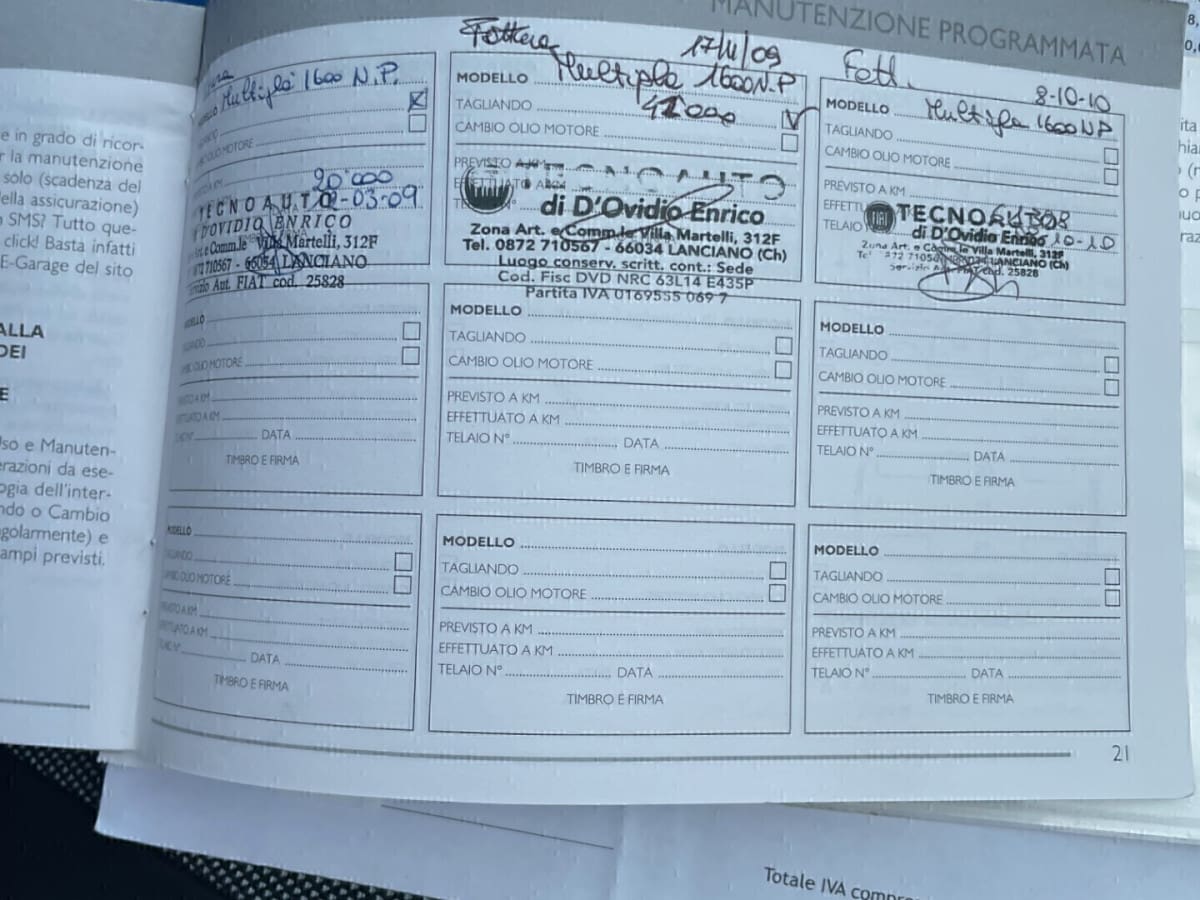 MANUTENZIONE PROGRAMMATA
e in grado di ricor-
r la manutenzione
solo (scadenza del
ella assicurazione)
SMS? Tutto que-
click! Basta infatti
E-Garage del sito
ALLA
DEI
E
Uso e Manuten-
erazioni da ese-
ogia dell'inter-
ndo o Cambio
golarmente) e
ampi previsti.
Multipla 1600 N.P.
20'000
TECNOAUTO
-03-09
D'OVIDIO ENRICO
Art. e Comm.le Villa Martelli, 312F
72 710567 - 66034 LANCIANO
Aut. FIAT cod. 25828
17/11/09
MODELLO Multipla 1600 N.P
TAGLIANDO
CAMBIO OLIO MOTORE
PREVISTO A KM
TECNOAUTO
di D'Ovidio Enrico
Zona Art. e Comm.le Villa Martelli, 312F
Tel. 0872 710567 - 66034 LANCIANO (Ch)
Luogo conserv. scritt. cont.: Sede
Cod. Fisc DVD NRC 63L14 E435P
Partita IVA 0169555 069 7
Fatt.
8-10-10
MODELLO Multipla 1600 NP
TAGLIANDO
CAMBIO OLIO MOTORE
PREVISTO A KM
TELAIO
FIAT
di D'Ovidio Enrico
10-10
Zona Art. e Comm.le Villa Martelli, 312F
LANCIANO (Ch)
cod. 25828
MODELLO
CAMBIO OLIO MOTORE
PREVISTO A KM
EFFETTUATO A KM
DATA
TIMBRO E FIRMA
MODELLO
TAGLIANDO
CAMBIO OLIO MOTORE
PREVISTO A KM
EFFETTUATO A KM
TELAIO N° DATA
TIMBRO E FIRMA
MODELLO
TAGLIANDO
CAMBIO OLIO MOTORE
PREVISTO A KM
EFFETTUATO A KM
TELAIO N° DATA
TIMBRO E FIRMA
MODELLO
TAGLIANDO
CAMBIO OLIO MOTORE
PREVISTO A KM
EFFETTUATO A KM
DATA
TIMBRO E FIRMA
MODELLO
TAGLIANDO
CAMBIO OLIO MOTORE
PREVISTO A KM
EFFETTUATO A KM
TELAIO N° DATA
TIMBRO E FIRMA
MODELLO
TAGLIANDO
CAMBIO OLIO MOTORE
PREVISTO A KM
EFFETTUATO A KM
TELAIO N° DATA
TIMBRO E FIRMA
21
Totale IVA compr